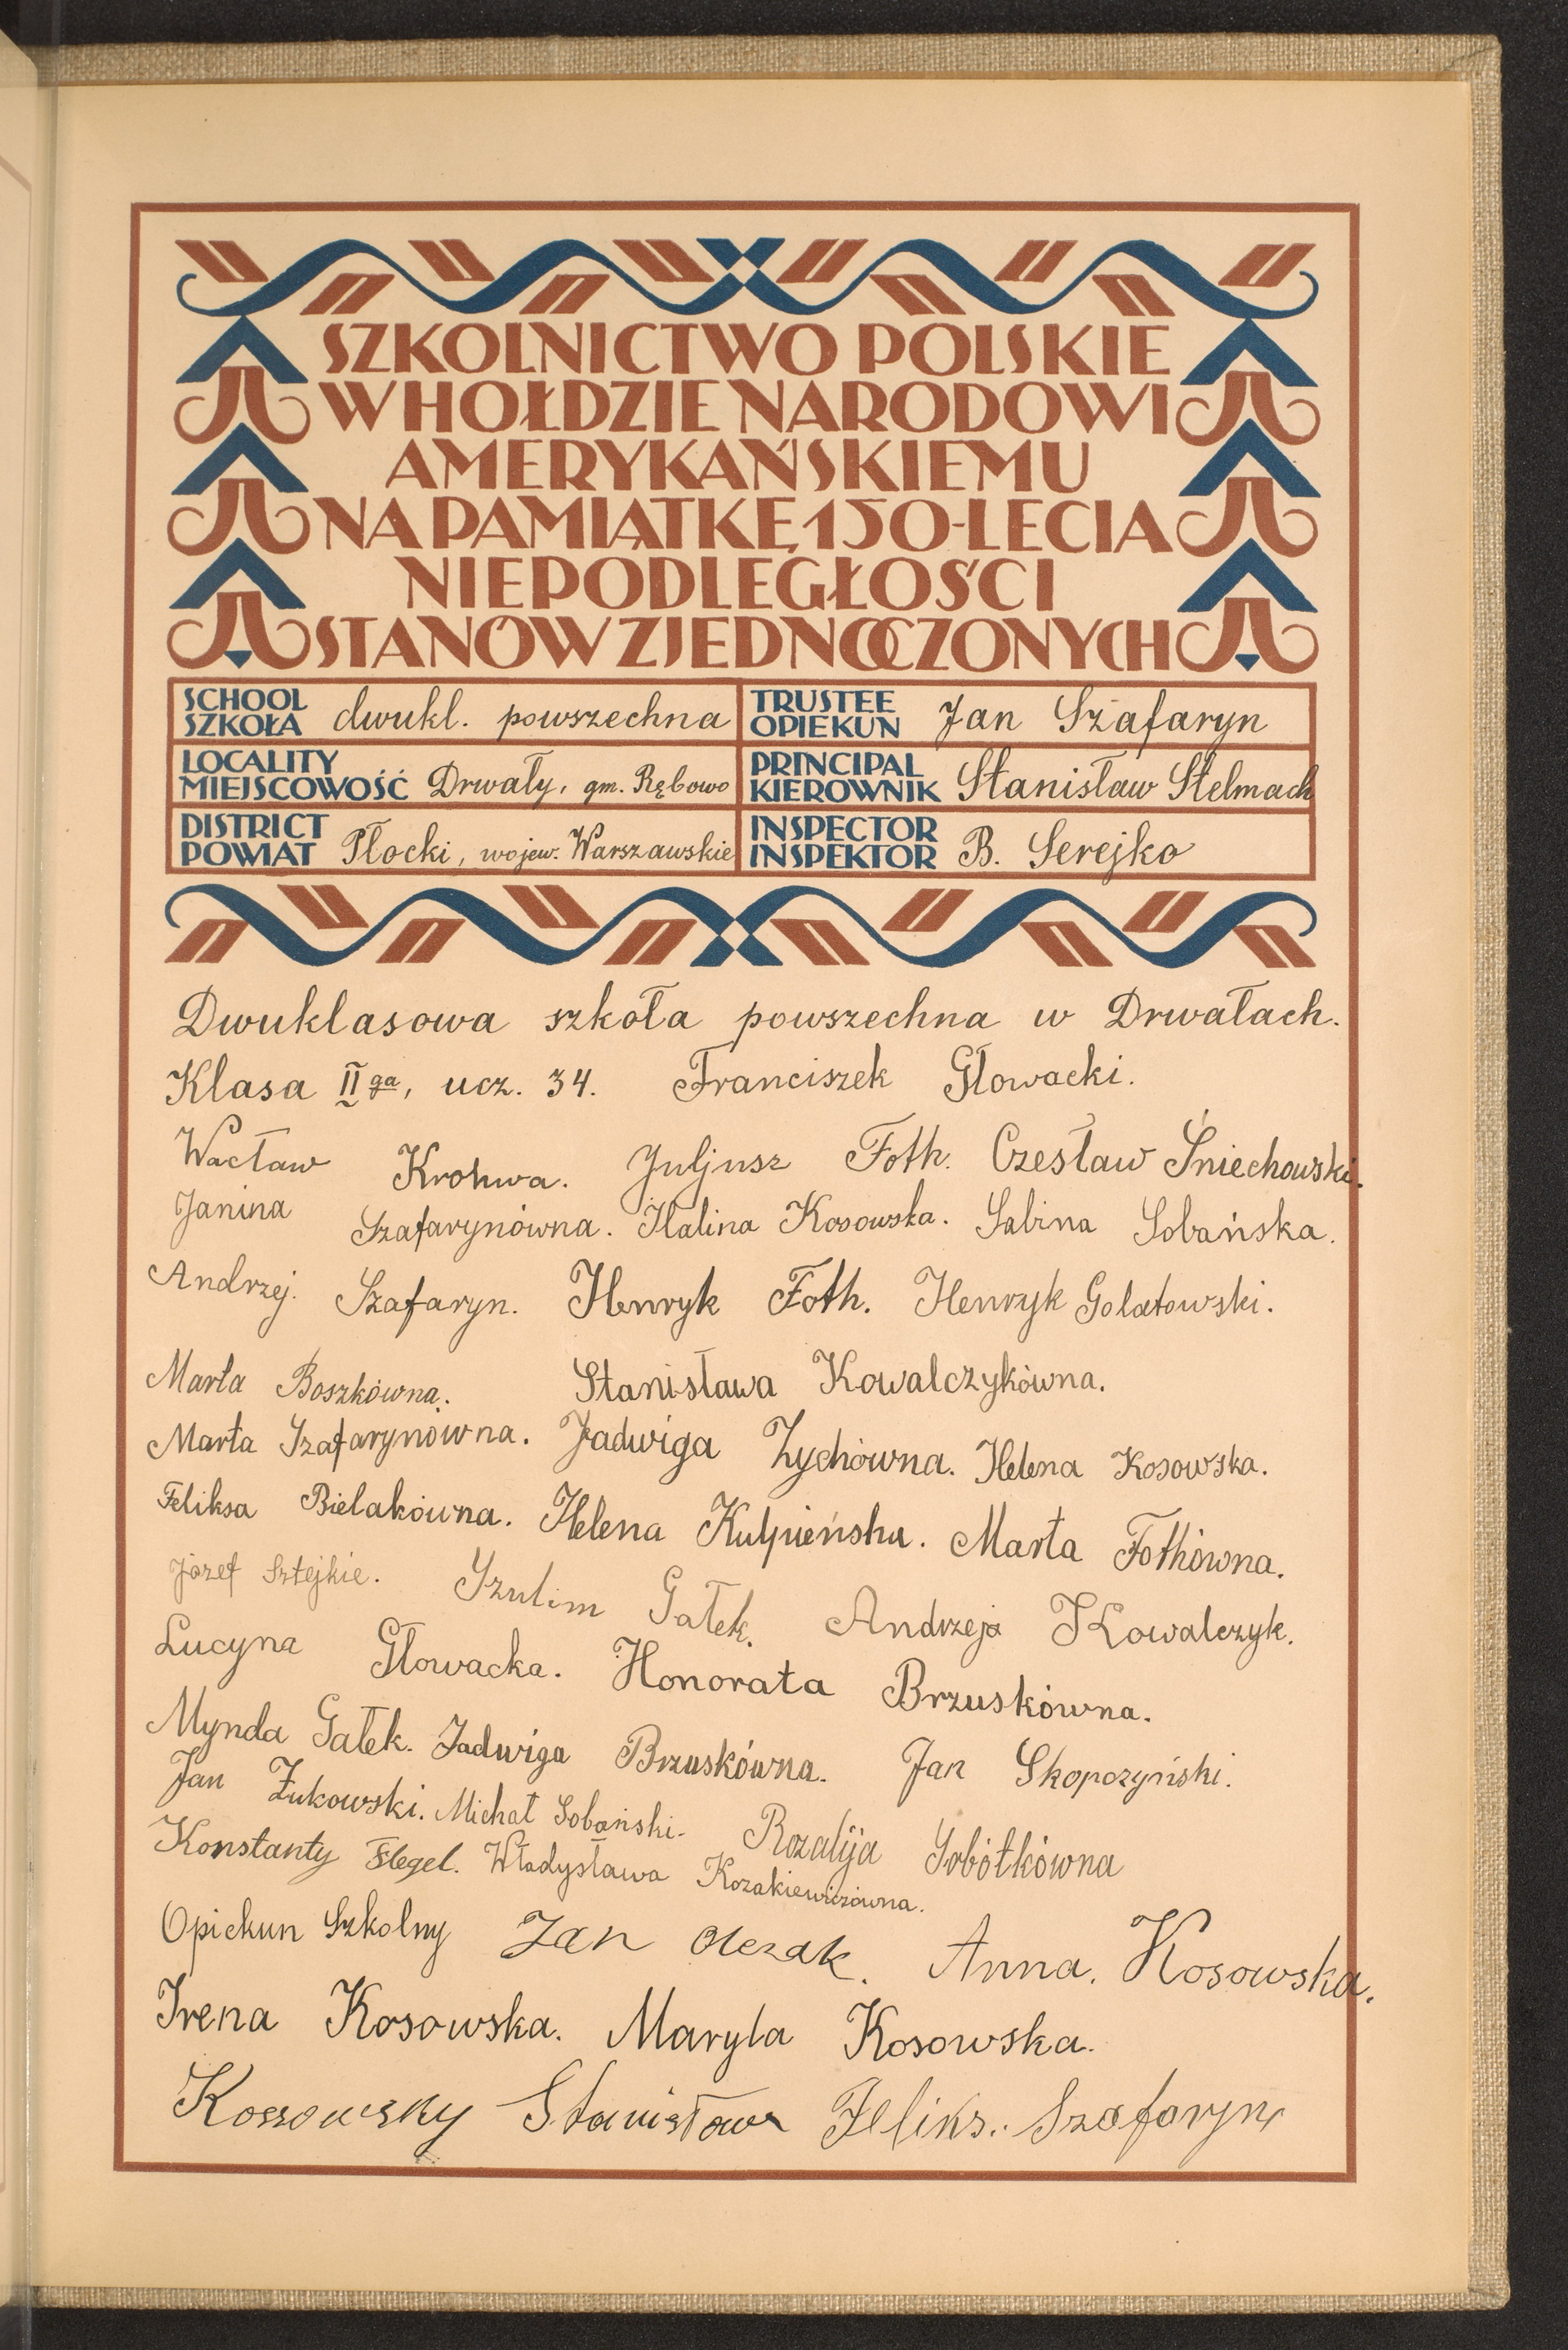 SZKOLNICTWO POLSKIE
W HOŁDZIE NARODOWI
AMERYKAŃSKIEMU
NA PAMIĄTKĘ 150-LECIA
NIEPODLEGŁOŚCI
STANÓW ZJEDNOCZONYCH
SCHOOL
SZKOŁA dwukl. powszechna
TRUSTEE
OPIEKUN Jan Szafaryn
LOCALITY
MIEJSCOWOŚĆ Drwały, gm. Rębowo
PRINCIPAL
KIEROWNIK Stanisław Stelmach
DISTRICT
POWIAT Płocki, wojew. Warszawskie
INSPECTOR
INSPEKTOR B. Serejko
Dwuklasowa szkoła powszechna w Drwałach.
Klasa II ga, ucz. 34. Franciszek Głowacki.
Wacław Krohwa. Juljusz Foth. Czesław Śniechowski.
Janina Szafarynówna. Halina Kosowska. Sabina Sobańska.
Andrzej. Szafaryn. Henryk Foth. Henryk Golatowski.
Marta Boszkówna. Stanisława Kowalczykówna.
Marta Szafarynówna. Jadwiga Zychówna. Helena Kosowska.
Feliksa Bielakówna. Helena Kulpieńska. Marta Fothówna.
Józef Sztejkie. Szulim Gałek. Andrzej Kowalczyk.
Lucyna Głowacka. Honorata Brzuskówna.
Mynda Gałek. Jadwiga Brzuskówna. Jan Skopczyński.
Jan Żukowski. Michał Sobański. Rozalija Sobótkówna
Konstanty Flegel. Władysława Kozakiewiczówna.
Opiekun Szkolny Jan Olczak. Anna. Kosowska.
Irena Kosowska. Maryla Kosowska.
Kossowsky Stanisław Feliks. Szafaryn